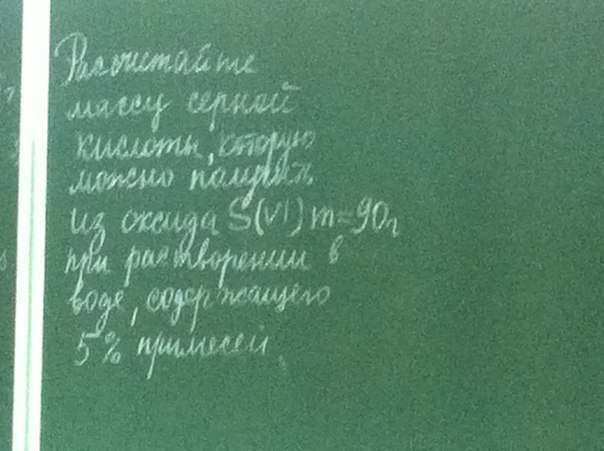 Рассчитайте
массу серной
кислоты, которую
можно получить
из оксида S(VI) m=90г
при растворении в
воде, содержащего
5% примесей.